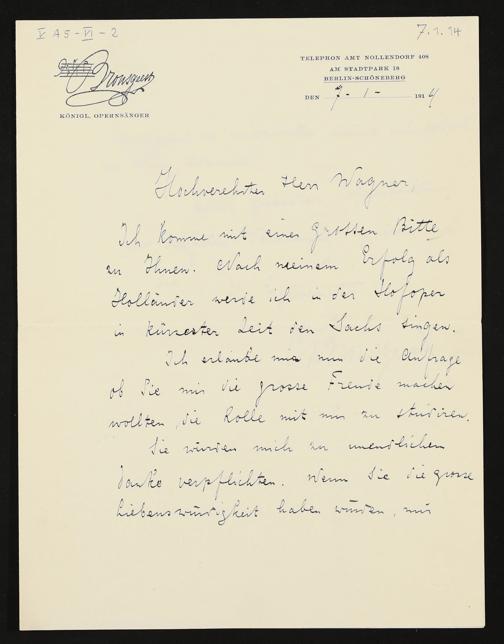 V A5-VI-2
7.1.14
Bronsgeest
KÖNIGL. OPERNSÄNGER
TELEPHON AMT NOLLENDORF 408
AM STADTPARK 18
BERLIN-SCHÖNEBERG
DEN 7-1- 1914
Hochverehrter Herr Wagner,
Ich komme mit einer grossen Bitte
zu Ihnen. Nach meinem Erfolg als
Holländer werde ich in der Hofoper
in kürzester Zeit den Sachs singen.
Ich erlaube mir nun die Anfrage
ob Sie mir die grosse Freude machen
wollten, die Rolle mit mir zu studiren.
Sie würden mich zu unendlichem
Danke verpflichten. Wenn Sie die grosse
Liebenswürdigkeit haben würden, mir